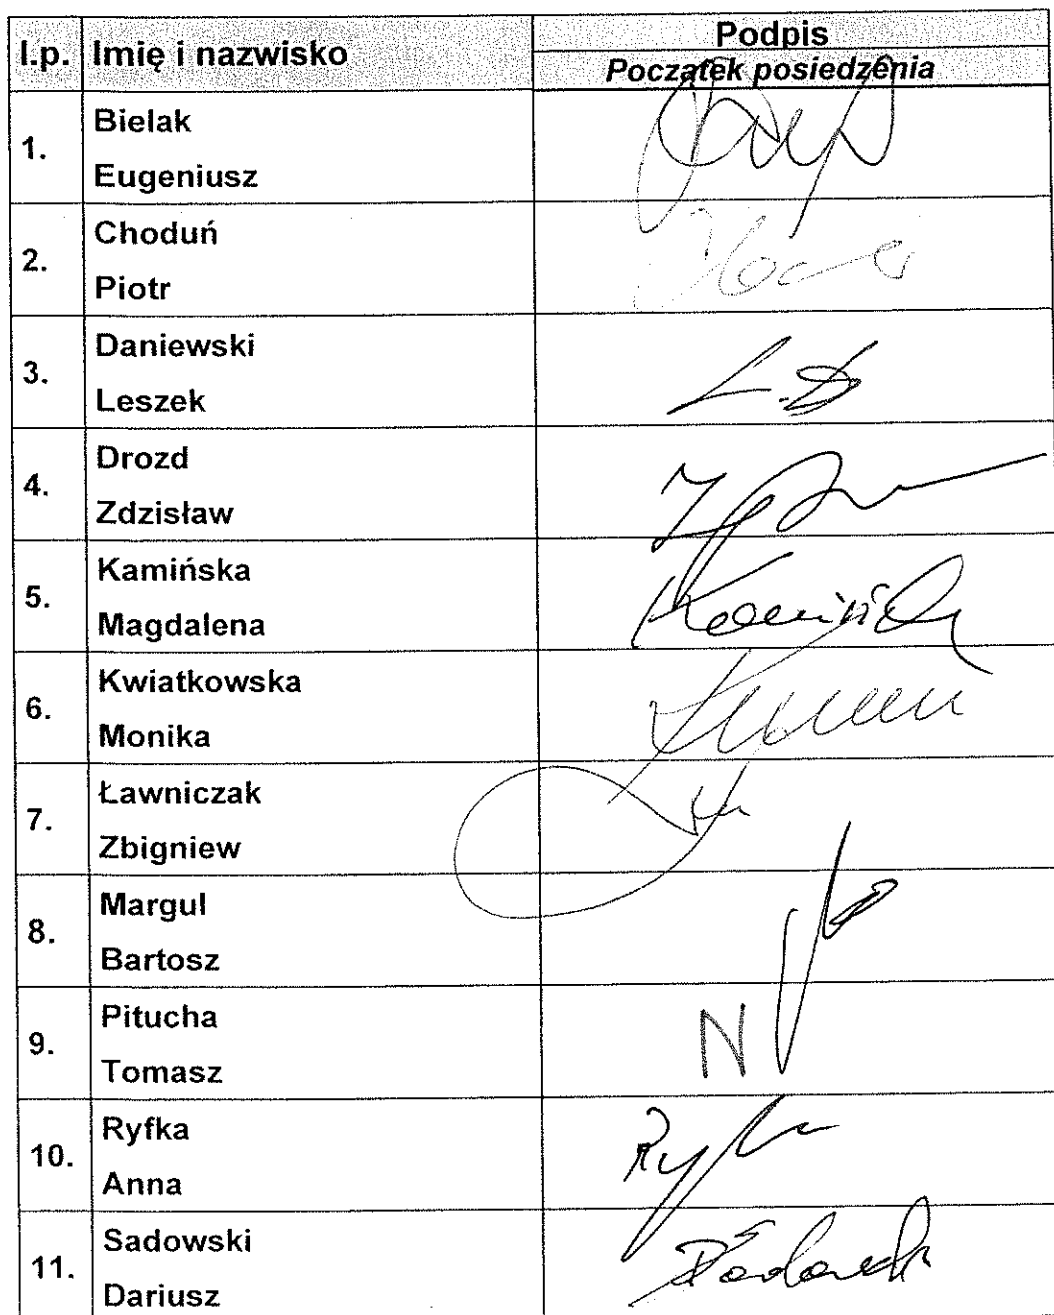 l.p. Imię i nazwisko Podpis
Początek posiedzenia
1. Bielak
Eugeniusz
2. Choduń
Piotr
3. Daniewski
Leszek L.D
4. Drozd
Zdzisław
5. Kamińska
Magdalena Kamińska
6. Kwiatkowska
Monika
7. Ławniczak
Zbigniew
8. Margul
Bartosz
9. Pitucha
Tomasz N
10. Ryfka
Anna Ryfka
11. Sadowski
Dariusz DSadowski